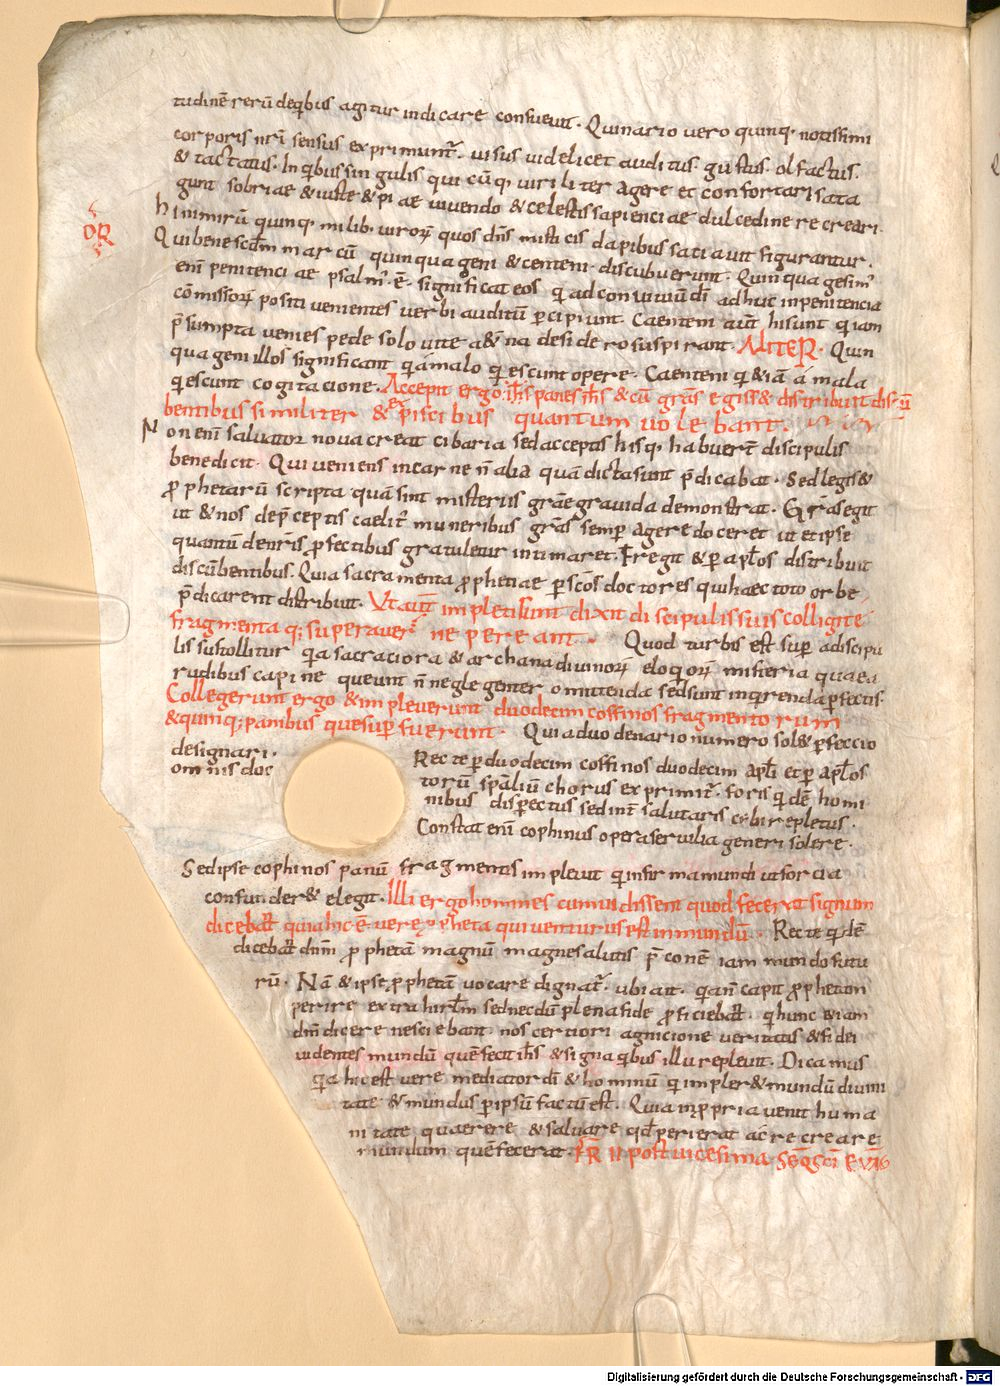 tudinē rerū deqͥbus agitur indicare consueuit. Quinario vero quinq; notissimi
corporis nr̄i sensus exprimunt᷑. uisus uidelicet auditus. gustus. olfactus.
& tactatus. In qͥbus singulis qui cūq; uiriliter agere et confortari sata
gunt sobriae & iuste & piae uiuendo & celestis sapienciae dulcedine recreari.
hi nimirū quinq; milib; uiroꝝ quos dn̄s misticis dapibus saciauit figurantur.
DR̄
Qui bene scd̄m marcū quinquageni & centeni discubuerunt. Quinquagesim᷒
enī penitenciae psalm᷒ .ē. significat eos qͥ ad conuiuiū dī adhuc in penitencia
cōmissoꝝ positi uenientes uerbi auditū ꝑcipiunt. Caenteni aut̄ hi sunt qͥ iam
p̄sumpta uenies pede solo uite aet̄na desidero suspirant. ALITER. Quin
quageni illos significant qͥ a malo qͥescunt opere. Caenteni qͥ &iā a mala
qͥescunt cogitacione. Accepit ergo ih̄s panes ih̄s & cū grās egiss& distribuit dis ū
bentibus similiter & ex piscibus quantum uolebant.
Non enī saluator noua creat cibaria sed acceptis his q; habuert̄ discipulis
benedicit. Qui ueniens in carne n̄ alia quā dicta sunt p̄dicabat. Sed legis &
ꝓphetarū scripta quā sint misteriis grāe grauida demonstrat. Grās egit
ut & nos de p̄ceptis caelit᷒ muneribus grās semꝑ agere doceret ut et ipse
quantū de nr̄is ꝓfectibus gratuletur intimaret. Fregit & ꝑ apl̄os distribuit
discūbentibus. Quia sacramenta ꝓphetiae ꝑ scōs doctores qui haec toto orbe
p̄dicarent distribuit. Ut aut̄ impleti sunt dixit discipulis suis colligite
fragmenta q; superauer᷑ ne pereant. Quod turbis est suꝑ a discipu
lis sustollitur qͥa sacraciora & archana diuinoꝝ eloqͥoꝝ misteria quae a
rudibus capi ne queunt n̄ neglegenter omittenda sed sunt inqͥrenda ꝑfectis.
Collegerunt ergo & impleuerunt duodecim coffinos fragmentorum
& quinq; panibus que suꝑfuerunt. Quia duodenario numero sol& ꝑfeccio
designari. Recte ꝑ duodecim coffinos duodecim apl̄i et ꝑ apl̄os
omnis doc torū sp̄aliū chorus exprimit᷑. foris qͥdē homi
nibus disꝑectus sed int᷒ salutaris cibi repletus.
Constat enī cophinus opera seruilia generi solere.
Sed ipse cophinos panū fragmentis impleuit qͥ infirma mundi ut forcia
confunder& elegit. Illi ergo homines cum uidissent quod fecerat signum
dicebāt quia hic ē uere ꝓpheta qui uenturus est in mundū. Recte qͥdē
dicebāt dn̄m ꝓphetā magnū magne salutis p̄conē iam mundo futu
rū. Nā & ipse ꝓphetā uocare dignat᷑. ubi ait. qͥa n̄ capit ꝓpheton
perire extra hirl̄m sed necdū plena fide ꝓficiebāt. qͥ hunc &iam
dn̄m dicere nesciebant. nos certiori agnicione ueritatis & fidei
uidentes mundū quē fecit ih̄s & signa qͥbus illū repleuit. Dicamus
qͥa hic est uere mediator dī & hominū qͥ impler& mundū diuini
tate & mundus ꝑ ipsū factus est. Quia in ꝓpria uenit huma
nitate quaerere & saluare qd̄ perierat ac recreare
mundum quē fecerat. FR̄ II post uicesima SEQ SC̄I EVAG
Digitalisierung gefördert durch die Deutsche Forschungsgemeinschaft - DFG